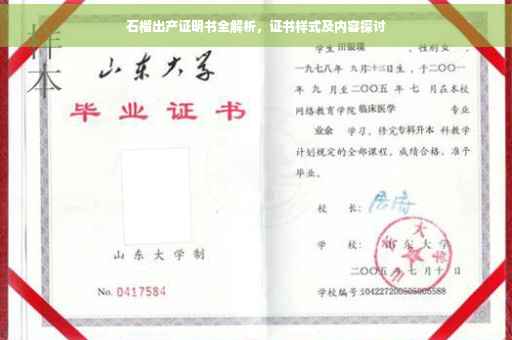 石榴出产证明书全解析，证书样式及内容探讨
样本
山东大学
毕业证书
山东大学制
No. 0417584
学生 田银瑞 ，性别女 ，
一九七八年 九月十三日生，于二〇〇一
年 九 月至二〇〇五 年 七 月在本校
网络教育学院 临床医学 专业
业余 学习，修完专科升本 科教学
计划规定的全部课程，成绩合格，准予
毕业。
校 长：
学 校：山东大学
二〇〇五 年 七 月 十 日
学校编号:104227200505005588